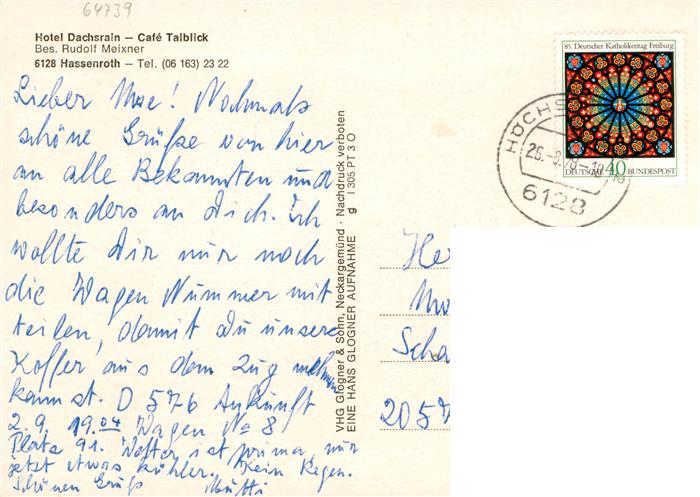 64739
Hotel Dachsrain – Café Talblick
Bes. Rudolf Meixner
6128 Hassenroth – Tel. (06 163) 23 22
Lieber Moe! Nochmals
schöne Grüße von hier
an alle Bekannten und
besonders an Dich. Ich
wollte Dir nur noch
die Wagen Nummer mit
teilen, damit Du unsere
Koffer aus dem Zug nehmen
kannst. D 576 Ankunft
2.9. 19.04 Wagen No 8
Platz 91. Wetter ist prima, nur
jetzt etwas kühler. Kein Regen.
Schönen Gruß Mutti
VHG Glogner & Sohn, Neckargemünd · Nachdruck verboten
EINE HANS GLOGNER AUFNAHME g I 305 PT 3 O
85. Deutscher Katholikentag Freiburg
DEUTSCHE BUNDESPOST
40
HÖCHS
26.-8.78-18
6128
He
Mo
Scha
2057